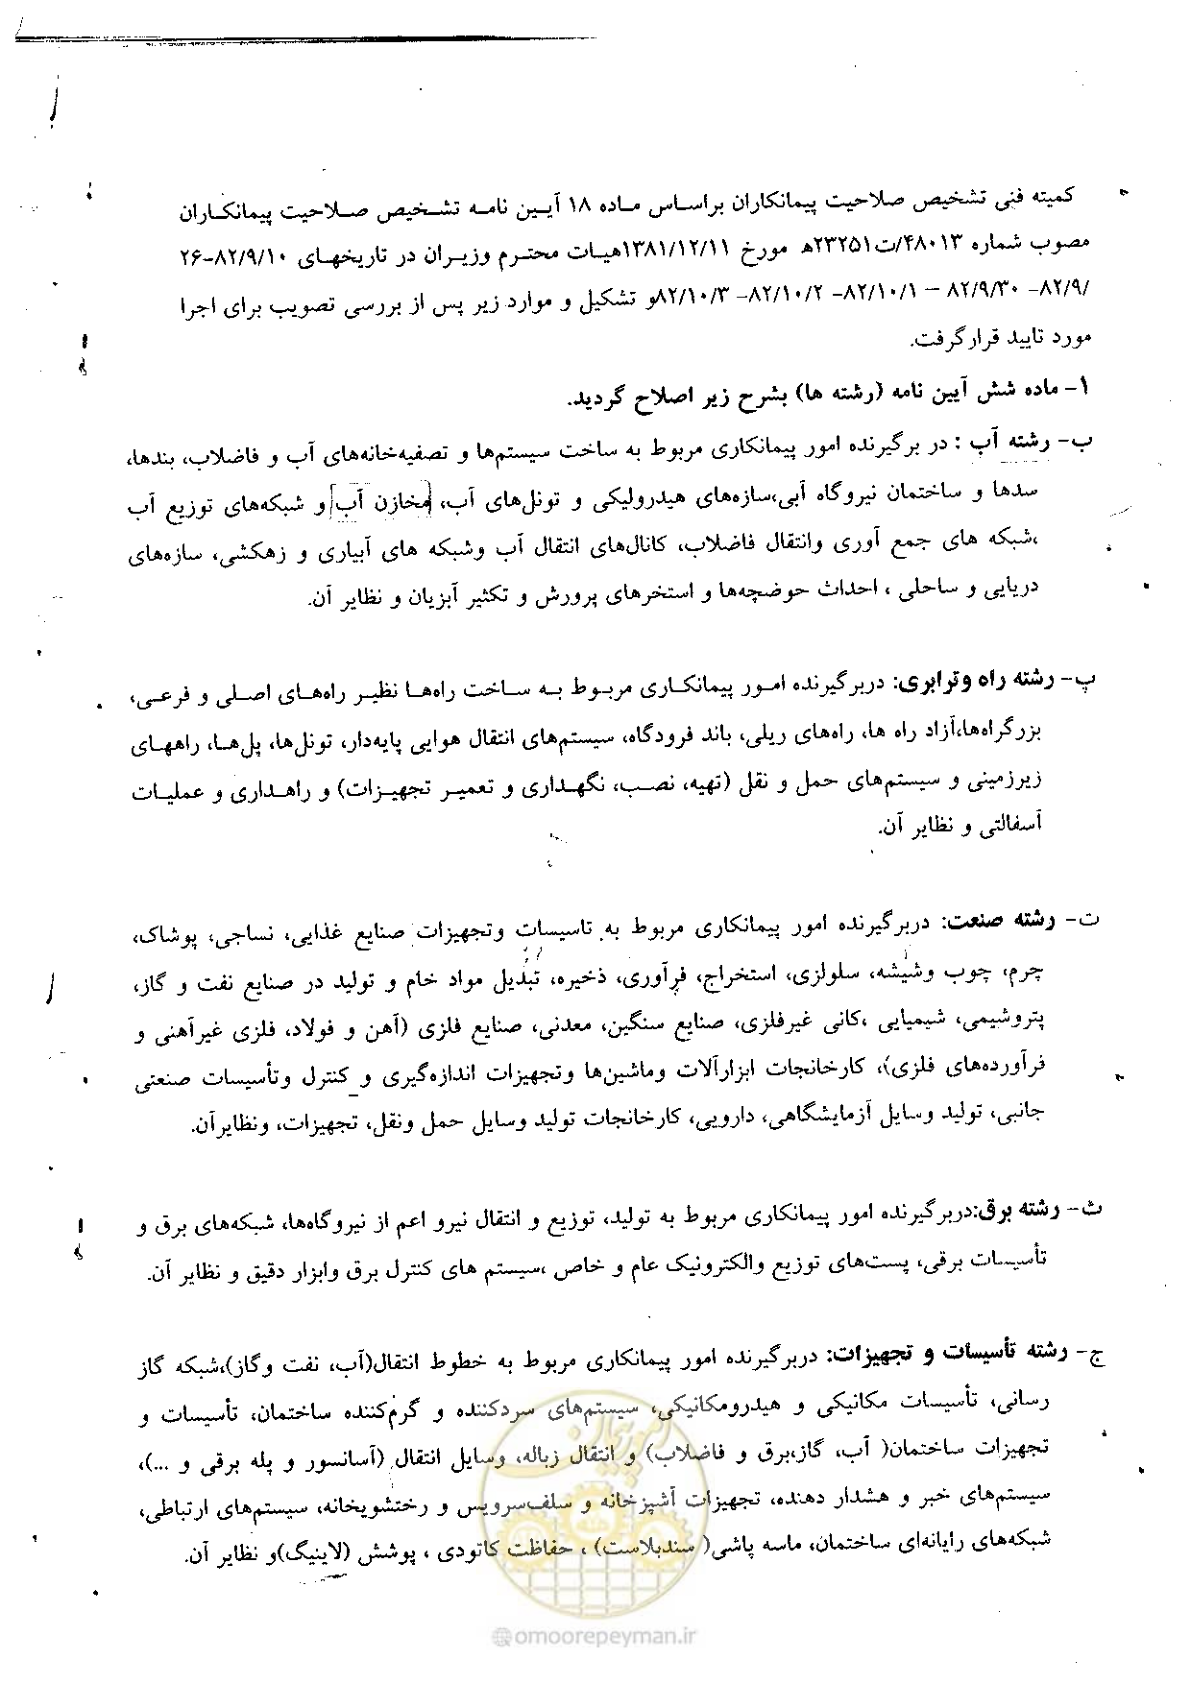 کمیته فنی تشخیص صلاحیت پیمانکاران براساس ماده ۱۸ آیین نامه تشخیص صلاحیت پیمانکاران
مصوب شماره ۴۸۰۱۳/ت۲۳۲۵۱ه مورخ ۱۳۸۱/۱۲/۱۱هیات محترم وزیران در تاریخهای ۸۲/۹/۱۰-۲۶
/۸۲/۹- ۸۲/۹/۳۰ – ۸۲/۱۰/۱- ۸۲/۱۰/۲- ۸۲/۱۰/۳و تشکیل و موارد زیر پس از بررسی تصویب برای اجرا
مورد تایید قرارگرفت.
۱- ماده شش آیین نامه (رشته ها) بشرح زیر اصلاح گردید.
ب- رشته آب : در برگیرنده امور پیمانکاری مربوط به ساخت سیستم‌ها و تصفیه‌خانه‌های آب و فاضلاب، بندها،
سدها و ساختمان نیروگاه آبی،سازه‌های هیدرولیکی و تونل‌های آب، [مخازن آب] و شبکه‌های توزیع آب
،شبکه های جمع آوری وانتقال فاضلاب، کانال‌های انتقال آب وشبکه های آبیاری و زهکشی، سازه‌های
دریایی و ساحلی ، احداث حوضچه‌ها و استخرهای پرورش و تکثیر آبزیان و نظایر آن.
پ- رشته راه وترابری: دربرگیرنده امور پیمانکاری مربوط به ساخت راه‌ها نظیر راه‌های اصلی و فرعی،
بزرگراه‌ها،آزاد راه ها، راه‌های ریلی، باند فرودگاه، سیستم‌های انتقال هوایی پایه‌دار، تونل‌ها، پل‌ها، راههای
زیرزمینی و سیستم‌های حمل و نقل (تهیه، نصب، نگهداری و تعمیر تجهیزات) و راهداری و عملیات
آسفالتی و نظایر آن.
ت- رشته صنعت: دربرگیرنده امور پیمانکاری مربوط به تاسیسات وتجهیزات صنایع غذایی، نساجی، پوشاک،
چرم، چوب وشیشه، سلولزی، استخراج، فرآوری، ذخیره، تبدیل مواد خام و تولید در صنایع نفت و گاز،
پتروشیمی، شیمیایی ،کانی غیرفلزی، صنایع سنگین، معدنی، صنایع فلزی (آهن و فولاد، فلزی غیرآهنی و
فرآورده‌های فلزی)، کارخانجات ابزارآلات وماشین‌ها وتجهیزات اندازه‌گیری و کنترل وتأسیسات صنعتی
جانبی، تولید وسایل آزمایشگاهی، دارویی، کارخانجات تولید وسایل حمل ونقل، تجهیزات، ونظایرآن.
ث- رشته برق:دربرگیرنده امور پیمانکاری مربوط به تولید، توزیع و انتقال نیرو اعم از نیروگاه‌ها، شبکه‌های برق و
تأسیسات برقی، پست‌های توزیع والکترونیک عام و خاص ،سیستم های کنترل برق وابزار دقیق و نظایر آن.
ج- رشته تأسیسات و تجهیزات: دربرگیرنده امور پیمانکاری مربوط به خطوط انتقال(آب، نفت وگاز)،شبکه گاز
رسانی، تأسیسات مکانیکی و هیدرومکانیکی، سیستم‌های سردکننده و گرم‌کننده ساختمان، تأسیسات و
تجهیزات ساختمان( آب، گاز،برق و فاضلاب) و انتقال زباله، وسایل انتقال (آسانسور و پله برقی و ...)،
سیستم‌های خبر و هشدار دهنده، تجهیزات آشپزخانه و سلف‌سرویس و رختشویخانه، سیستم‌های ارتباطی،
شبکه‌های رایانه‌ای ساختمان، ماسه پاشی( سندبلاست) ، حفاظت کاتودی ، پوشش (لاینیگ)و نظایر آن.
امور پیمان
@omoorepeyman.ir